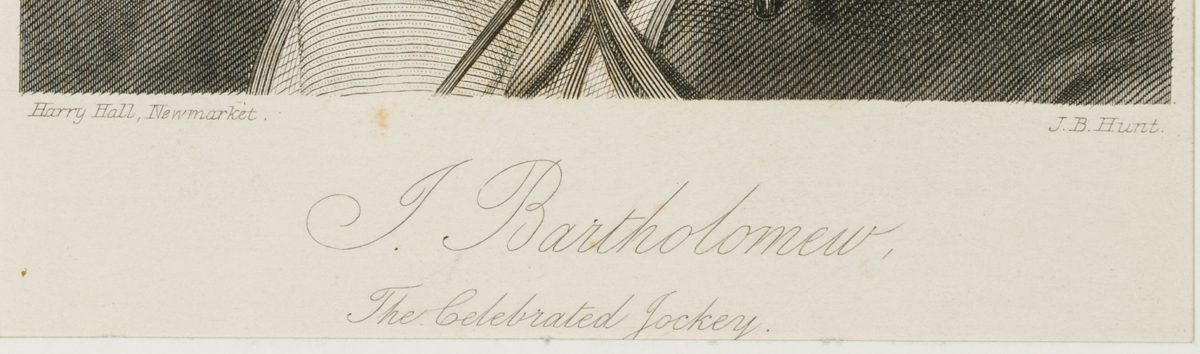 Harry Hall, Newmarket.
J. B. Hunt.
J. Bartholomew,
The Celebrated Jockey.